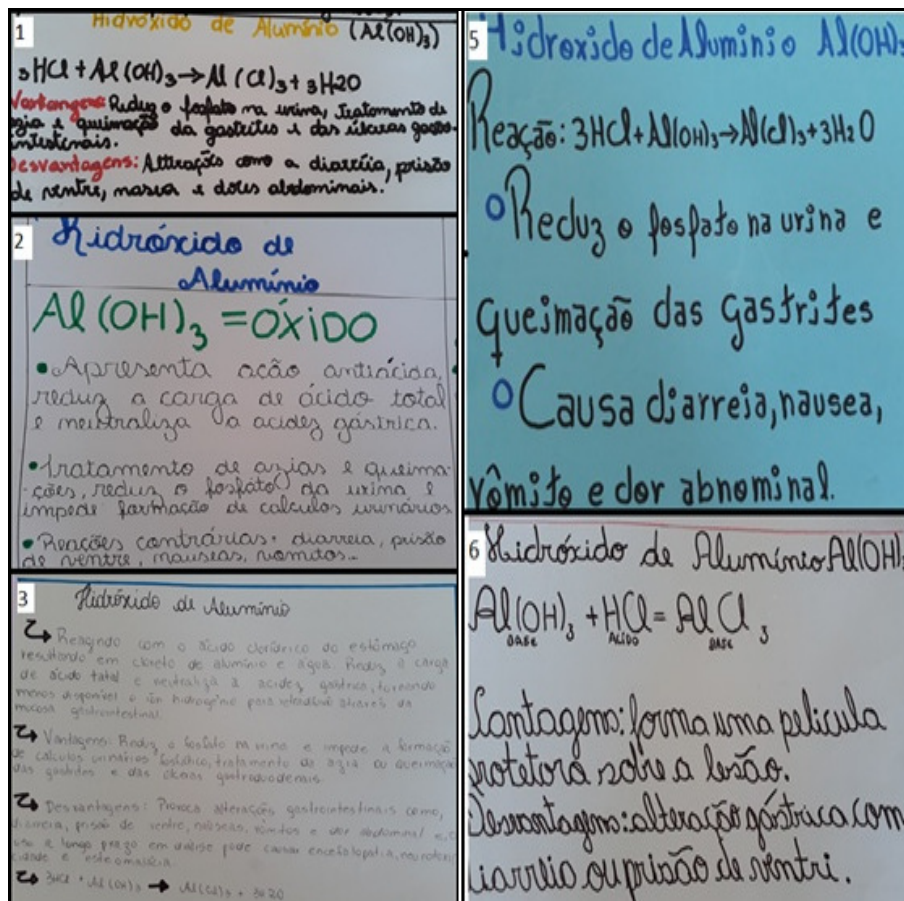 1
Hidróxido de Alumínio (Al(OH)₃)
3HCl + Al(OH)₃ → Al(Cl)₃ + 3H2O
Vantagens: Reduz o fosfato na urina, tratamento de
azia e queimação da gastrites e das úlceras gastro-
intestinais.
Desvantagens: Altterações como a diarréia, prisão
de ventre, nasea e dores abdominais.
2
Hidróxido de
Alumínio
Al(OH)₃ = ÓXIDO
• Apresenta ação antiácida,
reduz a carga de ácido total
e neutraliza a acidez gástrica.
• tratamento de azias e queima-
ções, reduz o fosfato da urina e
impede formação de calculos urinários
• Reações contrárias: diarreia, prisão
de ventre, náuseas, vomitos...
3
Hidróxido de Alumínio
Reagindo com o ácido clorídrico do estômago
resultando em cloreto de alumínio e água. Reduz a carga
de ácido total e neutraliza a acidez gástrica, tornando
menos disponível o íon hidrogênio para através da
mucosa gastrointestinal.
Vantagens: Reduz o fosfato na urina e impede a formação
de calculos urinários fosfático, tratamento de azia ou queimação
das gastrites e das úlceras gastroduodenais.
Desvantagens: Provoca alterações gastrointestinais como,
diarreia, prisão de ventre, náuseas, vômitos e dor abdominal e, o
uso a longo prazo em diálise pode causar encefalopatia, neurotoxi
cidade e osteomalácia.
3HCl + Al(OH)₃ → Al(Cl)₃ + 3H2O
5
Hidroxido de Aluminio Al(OH)₃
Reação: 3HCl + Al(OH)₃ → Al(Cl)₃ + 3H₂O
Reduz o fosfato na urina e
queimação das gastrites
Causa diarreia, nausea,
vômito e dor abnominal.
6
Hidróxido de Alumínio Al(OH)₃
Al(OH)₃ + HCl = AlCl₃
BASE ÁCIDO BASE
Vantagens: forma uma pelicula
protetora sobre a lesão.
Desvantagens: alteração gástrica com
diarreia ou prisão de ventri.